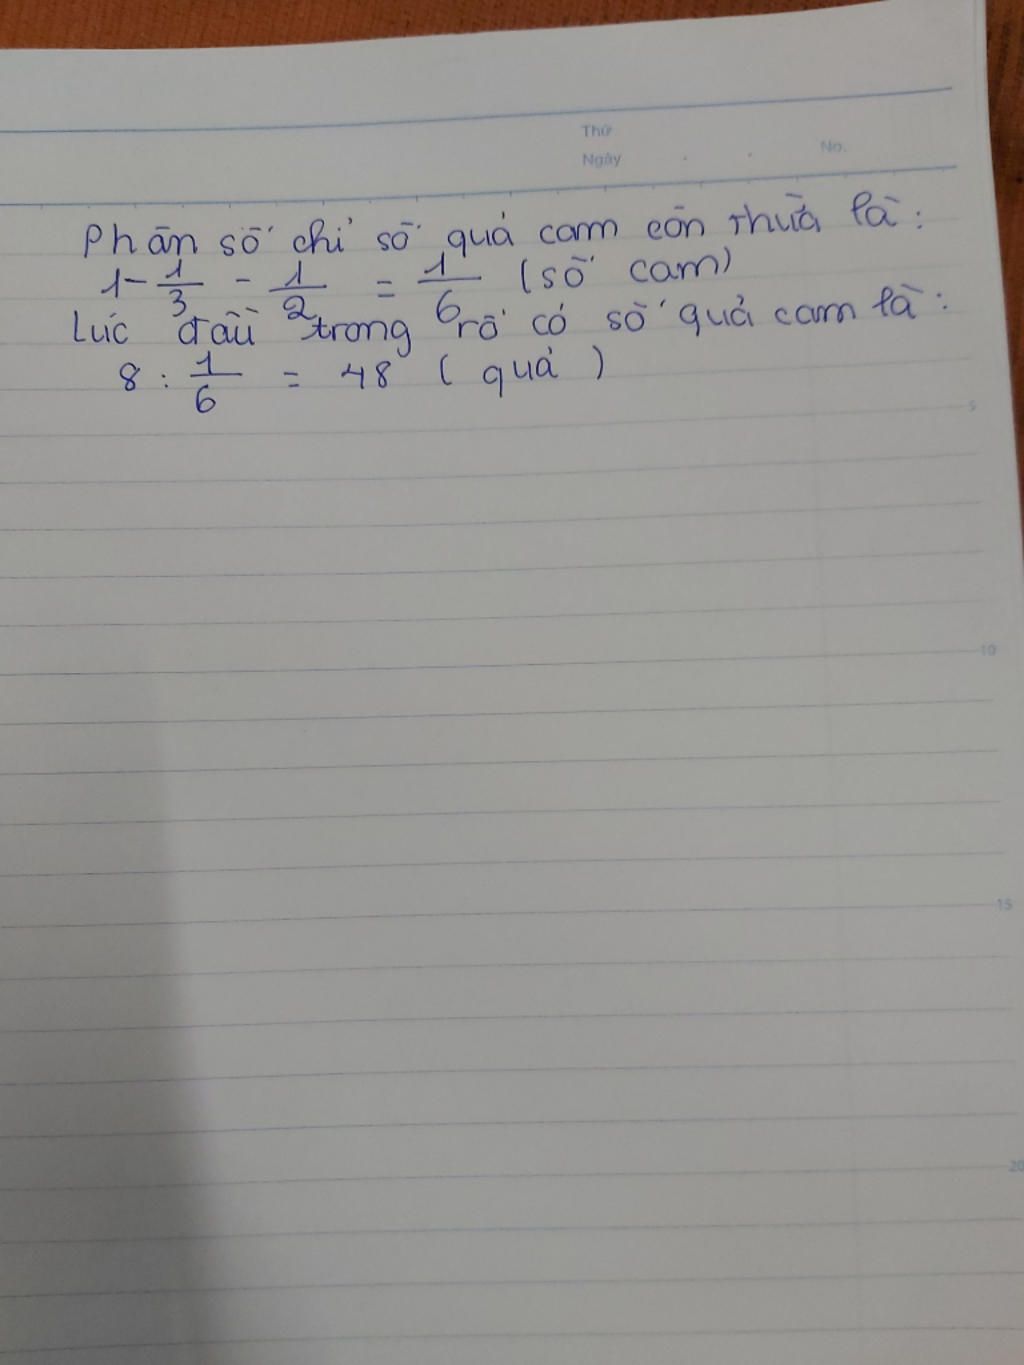 Thứ
Ngày . . No.
Phân số chỉ số quả cam còn thừa là:
1 - 1/3 - 1/2 = 1/6 (số cam)
Lúc đầu trong rổ có số quả cam là:
8 : 1/6 = 48 (quả)
5
10
15
20